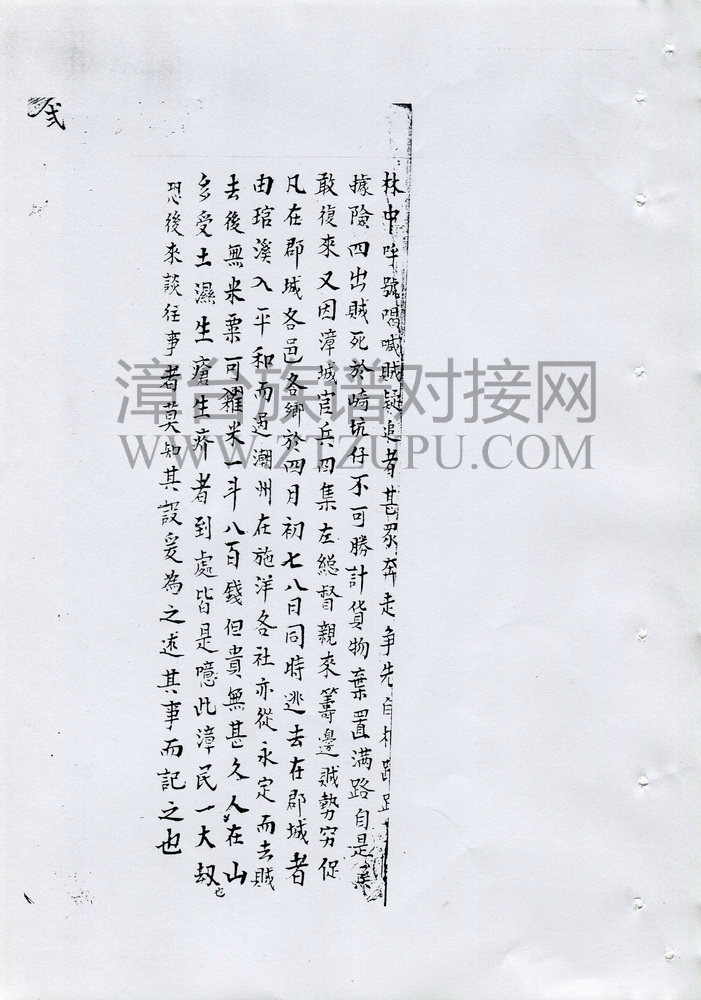 林中呼號喝喊賊疑追者甚眾奔走爭先自相
據險四出賊死於崎坑仔不可勝計貨物棄置满路自是
敢復來又因漳城官兵四集左總督親來籌邊賊勢穷促
凡在郡城各邑各鄉於四月初七八日同時逃去在郡城者
由琯溪入平和而過潮州在施洋各社亦從永定而去賊
去後無米粟可糴米一斗八百錢但貴無甚久人在山
多受土濕生瘡生疥者到處皆是噫此漳民一大劫也
恐後來談往事者莫知其設爰為之述其事而記之也
弍
漳台族谱对接网
WWW.ZTZUPU.COM